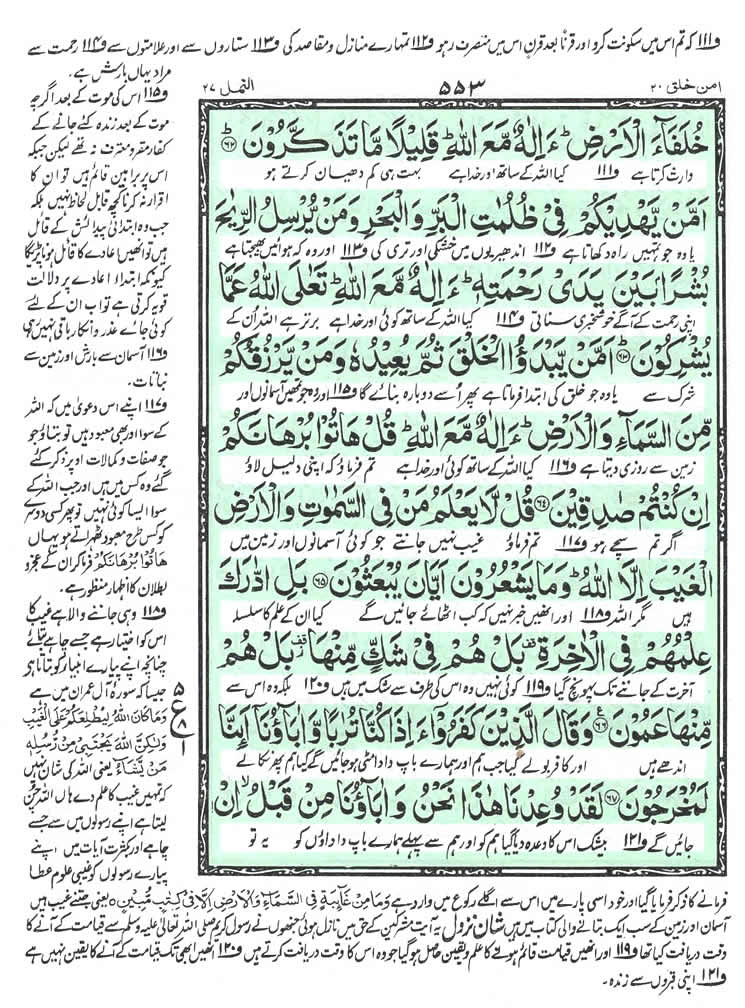 و۱۱۱ کہ تم اس میں سکونت کرو اور قرناً بعد قرنٍ اس میں متصرف رہو و۱۱۲ تمہارے منازل و مقاصد کی و۱۱۳ ستاروں سے اور علامتوں سے و۱۱۴ رحمت سے
مراد یہاں بارش ہے۔
امن خلق ۲۰
۵۵۳
النمل ۲۷
خُلَفَآءَ الْاَرْضِ ؕ ءَاِلٰهٌ مَّعَ اللّٰهِ ؕ قَلِیْلًا مَّا تَذَكَّرُوْنَ ﴿۶۲﴾
وارث کرتا ہے و۱۱۱ کیا اللہ کے ساتھ اور خدا ہے بہت ہی کم دھیان کرتے ہو
اَمَّنْ یَّهْدِیْكُمْ فِیْ ظُلُمٰتِ الْبَرِّ وَ الْبَحْرِ وَ مَنْ یُّرْسِلُ الرِّیٰحَ
یا وہ جو تمہیں راہ دکھاتا ہے و۱۱۲ اندھیریوں میں خشکی اور تری کی و۱۱۳ اور وہ کہ ہوائیں بھیجتا ہے
بُشْرًۢا بَیْنَ یَدَیْ رَحْمَتِهٖ ؕ ءَاِلٰهٌ مَّعَ اللّٰهِ ؕ تَعٰلَی اللّٰهُ عَمَّا
اپنی رحمت کے آگے خوشخبری سناتی و۱۱۴ کیا اللہ کے ساتھ کوئی اور خدا ہے برتر ہے اللہ ان کے
یُشْرِكُوْنَ ﴿۶۳﴾ اَمَّنْ یَّبْدَؤُا الْخَلْقَ ثُمَّ یُعِیْدُهٗ وَ مَنْ یَّرْزُقُكُمْ
شرک سے یا وہ جو خلق کی ابتدا فرماتا ہے پھر اُسے دوبارہ بنائے گا و۱۱۵ اور وہ جو تمہیں آسمانوں اور
مِّنَ السَّمَآءِ وَ الْاَرْضِ ؕ ءَاِلٰهٌ مَّعَ اللّٰهِ ؕ قُلْ هَاتُوْا بُرْهَانَكُمْ
زمین سے روزی دیتا ہے و۱۱۶ کیا اللہ کے ساتھ کوئی اور خدا ہے تم فرماؤ کہ اپنی دلیل لاؤ
اِنْ كُنْتُمْ صٰدِقِیْنَ ﴿۶۴﴾ قُلْ لَّا یَعْلَمُ مَنْ فِی السَّمٰوٰتِ وَ الْاَرْضِ
اگر تم سچے ہو و۱۱۷ تم فرماؤ غیب نہیں جانتے جو کوئی آسمانوں اور زمین میں
الْغَیْبَ اِلَّا اللّٰهُ ؕ وَ مَا یَشْعُرُوْنَ اَیَّانَ یُبْعَثُوْنَ ﴿۶۵﴾ بَلِ ادّٰرَكَ
ہیں مگر اللہ و۱۱۸ اور انھیں خبر نہیں کہ کب اٹھائے جائیں گے کیا ان کے علم کا سلسلہ
عِلْمُهُمْ فِی الْاٰخِرَةِ ۫ بَلْ هُمْ فِیْ شَكٍّ مِّنْهَا ۫ بَلْ هُمْ
آخرت کے جاننے تک پہونچ گیا و۱۱۹ کوئی نہیں وہ اس کی طرف سے شک میں ہیں و۱۲۰ بلکہ وہ اس سے
مِّنْهَا عَمُوْنَ ﴿۶۶﴾ وَ قَالَ الَّذِیْنَ كَفَرُوْۤا ءَاِذَا كُنَّا تُرٰبًا وَّ اٰبَآؤُنَاۤ اَىِٕنَّا
اندھے ہیں اور کافر بولے کیا جب ہم اور ہمارے باپ دادا مٹی ہوجائیں گے کیا ہم پھر نکالے
لَمُخْرَجُوْنَ ﴿۶۷﴾ لَقَدْ وُعِدْنَا هٰذَا نَحْنُ وَ اٰبَآؤُنَا مِنْ قَبْلُ ۙ اِنْ
جائیں گے و۱۲۱ بیشک اس کا وعدہ دیا گیا ہم کو اور ہم سے پہلے ہمارے باپ داداؤں کو یہ تو
و۱۱۵ اس کی موت کے بعد اگرچہ
موت کے بعد زندہ کئے جانے کے
کفار مقر و معترف نہ تھے لیکن جبکہ
اس پر براہین قائم ہیں تو ان کا
اقرار نہ کرنا کچھ قابل لحاظ نہیں بلکہ
جب وہ ابتدائی پیدائش کے قائل
ہیں تو انھیں اعادے کا قائل ہونا پڑیگا
کیونکہ ابتداء اعادے پر دلالت
قویہ کرتی ہے تو اب ان کے لئے
کوئی جائے عذر و انکار باقی نہیں رہی
و۱۱۶ آسمان سے بارش اور زمین سے
نباتات۔
و۱۱۷ اپنے اس دعویٰ میں کہ اللہ
کے سوا اور بھی معبود ہیں تو بتاؤ جو
جو صفات و کمالات اوپر ذکر کئے
گئے وہ کس میں ہیں اور جب اللہ کے
سوا ایسا کوئی نہیں تو پھر کسی دوسرے
کو کس طرح معبود ٹھہراتے ہو یہاں
هَاتُوْا بُرْهَانَكُمْ فرما کر ان کے عجز و
بطلان کا اظہار منظور ہے۔
و۱۱۸ وہی جاننے والا ہے غیب کا
اس کو اختیار ہے جسے چاہے بتائے
چنانچہ اپنے پیارے انبیاء کو بتاتا ہے
جیسا کہ سورۂ آل عمران میں ہے
وَمَا كَانَ اللّٰهُ لِيُطْلِعَكُمْ عَلَى الْغَيْبِ
وَلٰكِنَّ اللّٰهَ يَجْتَبِيْ مِنْ رُّسُلِهٖ
مَنْ يَّشَآءُ یعنی اللہ کی شان نہیں
کہ تمہیں غیب کا علم دے ہاں اللہ چن
لیتا ہے اپنے رسولوں میں سے جسے
چاہے اور بکثرت آیات میں اپنے
پیارے رسولوں کو غیبی علوم عطا
۵
ع
۸
۱
فرمانے کا ذکر فرمایا گیا اور خود اسی پارے میں اس سے اگلے رکوع میں وارد ہے وَمَا مِنْ غَآئِبَةٍ فِي السَّمَآءِ وَالْاَرْضِ اِلَّا فِيْ كِتٰبٍ مُّبِيْنٍ ٥ یعنی جتنے غیب ہیں
آسمان اور زمین کے سب ایک بتانے والی کتاب میں ہیں شان نزول یہ آیت مشرکین کے حق میں نازل ہوئی جنھوں نے رسول کریم صلی اللہ تعالیٰ علیہ وسلم سے قیامت کے آنے کا
وقت دریافت کیا تھا و۱۱۹ اور انھیں قیامت قائم ہونے کا علم و یقین حاصل ہو گیا جو وہ اس کا وقت دریافت کرتے ہیں و۱۲۰ انھیں ابھی تک قیامت کے آنے کا یقین نہیں ہے
و۱۲۱ اپنی قبروں سے زندہ۔